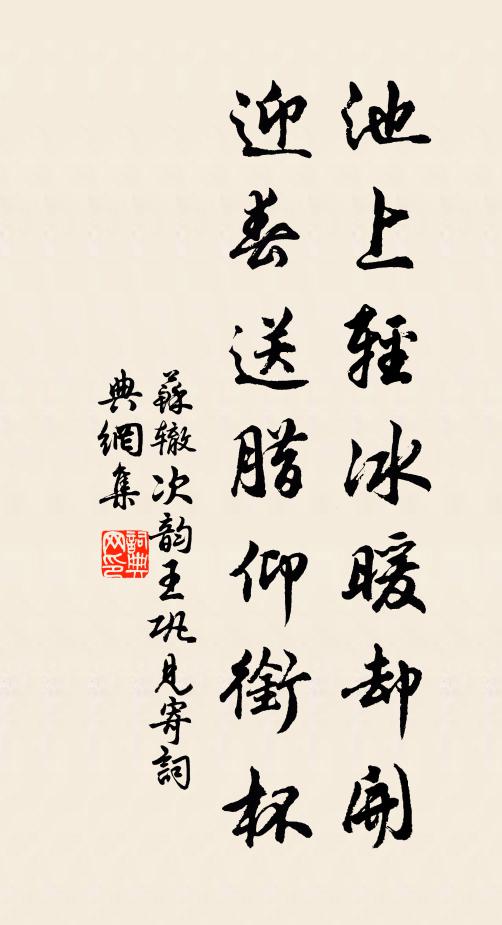 池上輕冰暖却開
迎春送腊仰銜杯
蘇轍次韵王巩見寄詞
典網集
詞典
网印